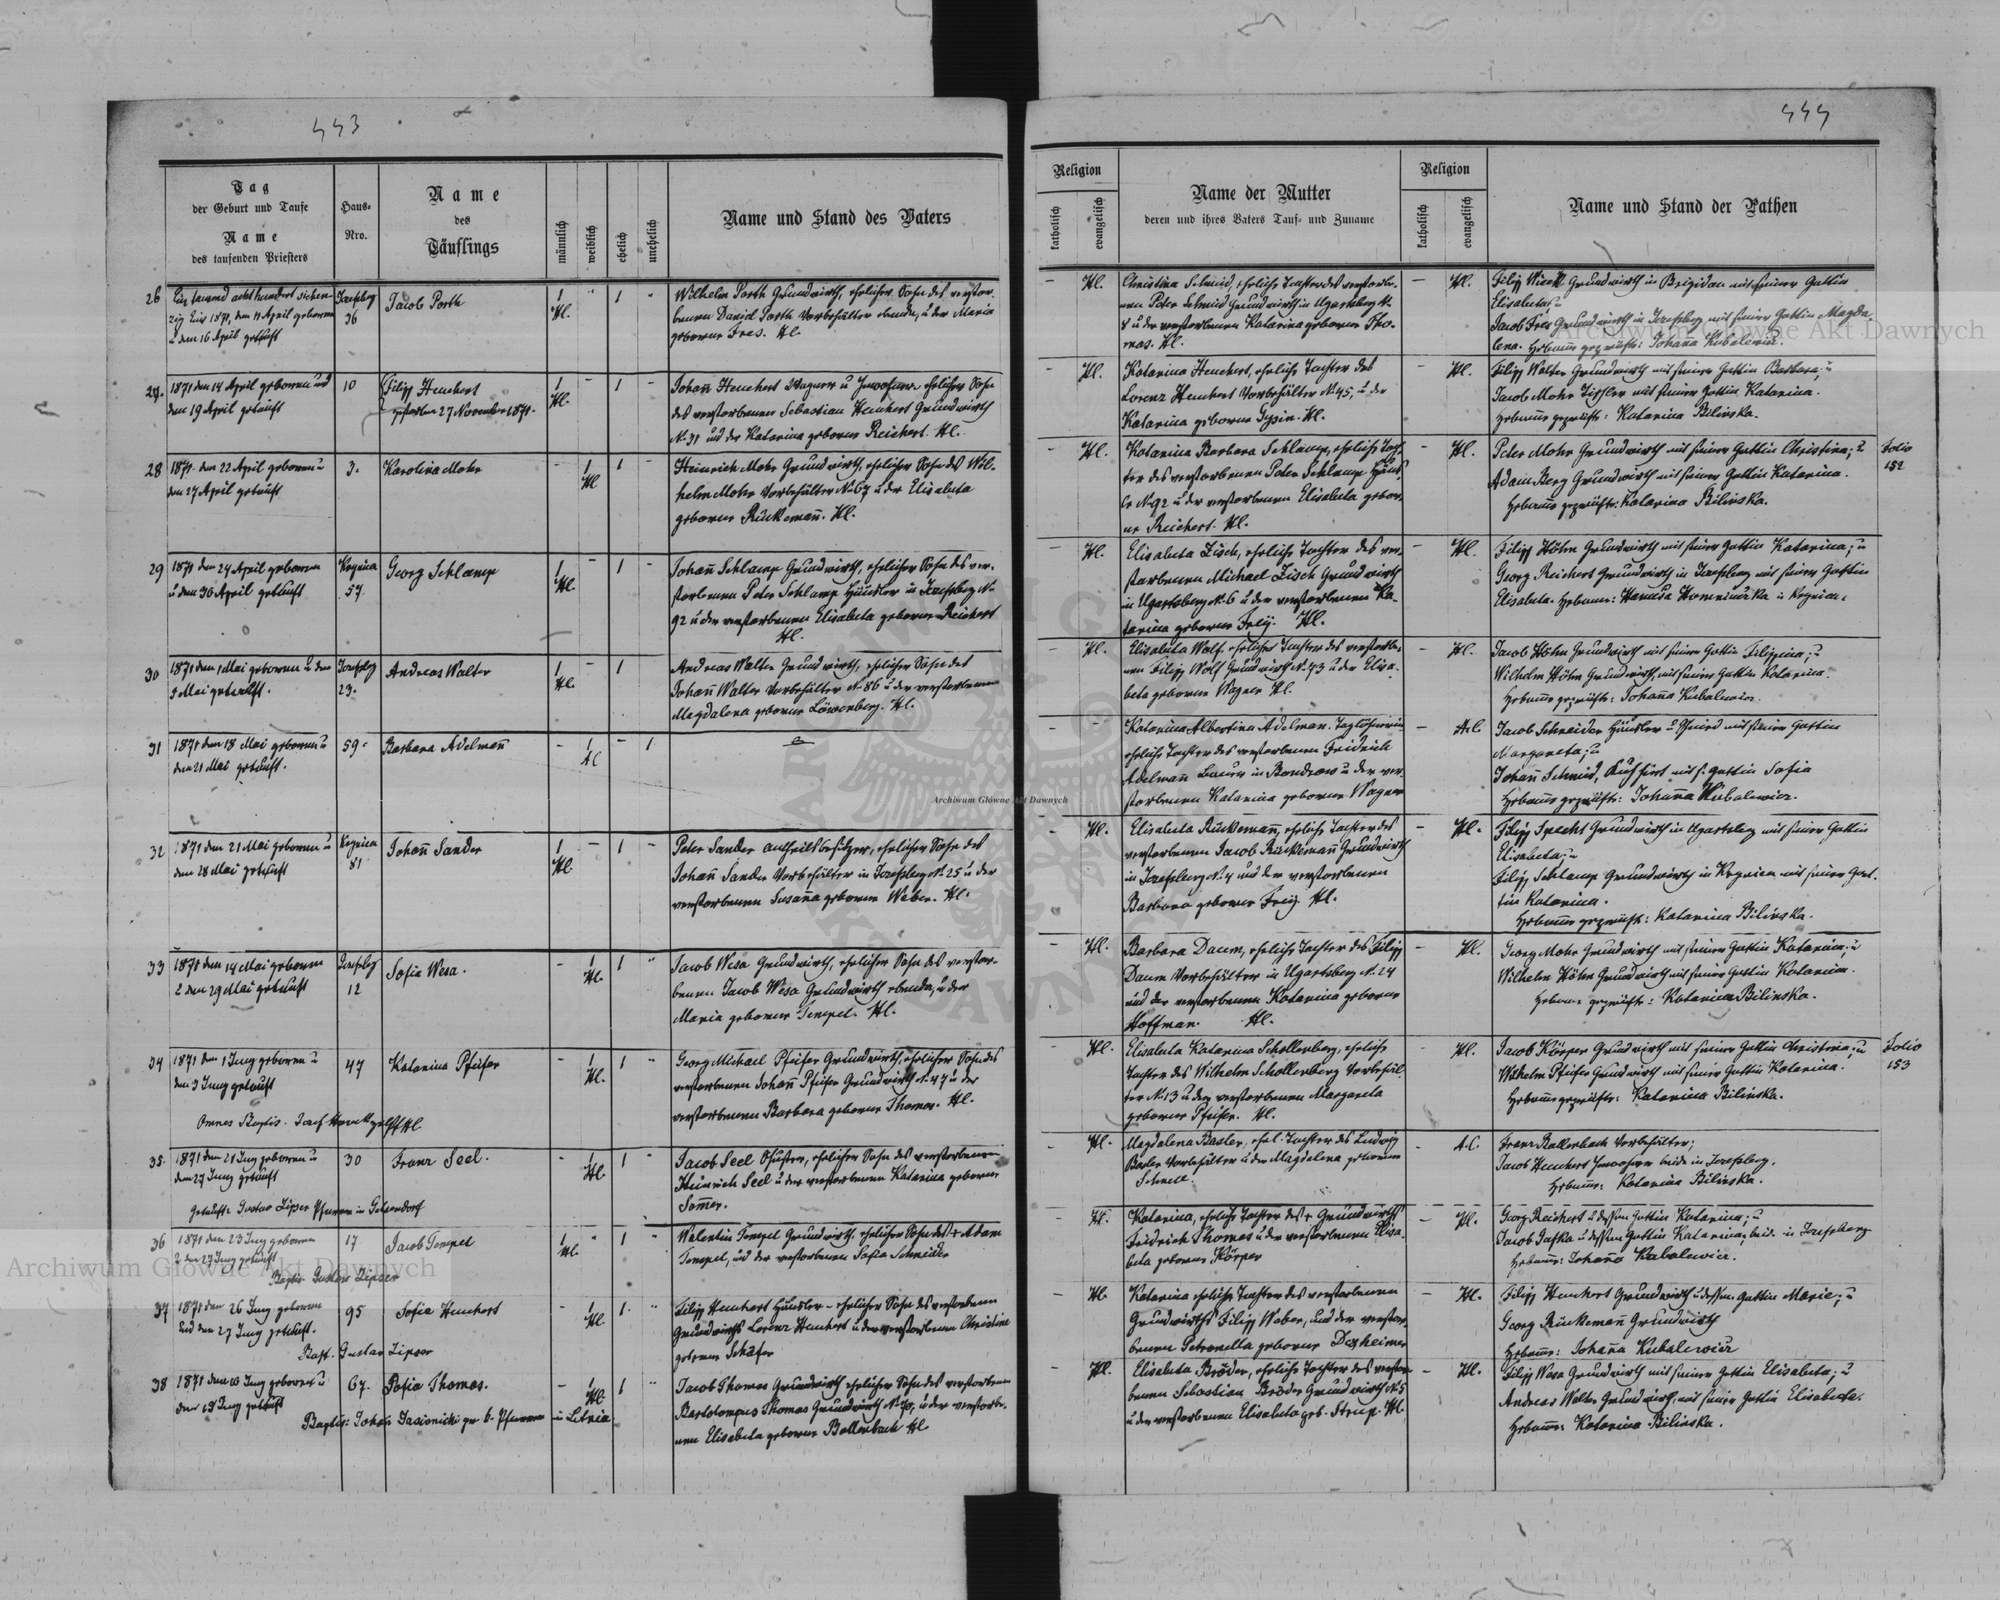 443
444
Tag
der Geburt und Taufe
Name
des taufenden Priesters
Haus-
Nro.
Name
des
Täuflings
männlich
weiblich
ehelich
unehelich
Name und Stand des Vaters
Religion
katholisch
evangelisch
Name der Mutter
deren und ihres Vaters Tauf- und Zuname
Religion
katholisch
evangelisch
Name und Stand der Pathen
26
Ein tausend achthundert sieben
zig Eins 1871, den 11 April geboren
u den 16 April getauft
Josefsberg
36
Jacob Porth
1
Hl.
1
Wilhelm Porth Grundwirth, ehelicher Sohn des verstor-
benen David Porth Vorbehälter ebenda, u der Maria
geborene Fres. Hl.
Hl.
Christina Schmid, eheliche Tochter des verstorbe-
nen Peter Schmid Grundwirth in Ugartsberg N.
8 u der verstorbenen Katarina geborene Tho-
mas. Hl.
Hl.
Filipp Grundwirth in Brigidau mit seiner Gattin
Elisabeta; u
Jacob Fres Grundwirth in Josefsberg mit seiner Gattin Magda-
lena. Hebamme geprüfte: Johanna Kubalewicz.
27.
1871 den 14 April geboren und
den 19 April getauft
10
Filipp Heuchert
gestorben 27 November 1871.
1
Hl.
1
Johann Heuchert Wagner u Inwohner ehelicher Sohn
des verstorbenen Sebastian Heuchert Grundwirth
N. 31 und der Katarina geborene Reichert. Hl.
Hl.
Katarina Heuchert, eheliche Tochter des
Lorenz Heuchert Vorbehälter N. 45, u der
Katarina geborene Gysin. Hl.
Hl.
Filipp Walter Grundwirth mit seiner Gattin Barbara; u
Jacob Mohr Tischler mit seiner Gattin Katarina.
Hebamme geprüfte: Katarina Bilinska.
28
1871 den 22 April geboren u
den 27 April getauft
3.
Karolina Mohr
1
Hl
1
Heinrich Mohr Grundwirth, ehelicher Sohn des Wil-
helm Mohr Vorbehälter N. 67 u der Elisabeta
geborene Rückemann. Hl.
Hl.
Katarina Barbara Schlamp, eheliche Toch-
ter des verstorbenen Peter Schlamp Häus-
ler N. 92 u der verstorbenen Elisabeta gebore-
ne Reichert. Hl.
Hl.
Peter Mohr Grundwirth mit seiner Gattin Christina; u
Adam Berg Grundwirth mit seiner Gattin Katarina.
Hebamme geprüfte: Katarina Bilinska.
Folio
152
29
1871 den 24 April geboren
u den 30 April getauft
Kognica
57
Georg Schlamp
1
Hl.
1
Johann Schlamp Grundwirth, ehelicher Sohn des ver-
storbenen Peter Schlamp Häusler in Josefsberg N.
92 u der verstorbenen Elisabeta geborene Reichert
Hl.
Hl.
Elisabeta Zisch, eheliche Tochter des ver-
storbenen Michael Zisch Grundwirth
in Ugartsberg N. 6 u der verstorbenen Ka-
tarina geborene Frey. Hl.
Hl.
Filipp Höhn Grundwirth mit seiner Gattin Katarina; u
Georg Reichert Grundwirth in Josefsberg mit seiner Gattin
Elisabeta. Hebamme: in
30
1871 den 1 Mai geboren u den
Mai getauft.
Josefsberg
23.
Andreas Walter
1
Hl.
1
Andreas Walter Grundwirth, ehelicher Sohn des
Johann Walter Vorbehälter N. 86 u der verstorbenen
Magdalena geborene Löwenberg. Hl.
Hl.
Elisabeta Wolf eheliche Tochter des verstorbe-
nen Filipp Wolf Grundwirth N. 73 u der Elisa-
beta geborene Wagner Hl.
Hl.
Jacob Höhn Grundwirth mit seiner Gattin Filippina; u
Wilhelm Höhn Grundwirth, mit seiner Gattin Katarina.
Hebamme geprüfte: Johanna Kubalewicz.
31
1871 den 18 Mai geboren u
den 21 Mai getauft.
59.
Barbara Adelmann
1
AC
1
Katarina Albertina Adelman. Taglöhnerin
eheliche Tochter des verstorbenen Fridrich
Adelmann Bauer in u der ver-
storbenen Katarina geborene Wagner
A.C.
Jacob Schneider Häusler u Schmied mit seiner Gattin
Margareta; u
Johann Schmid, Kuhhirt mit s. Gattin Sofia
Hebamme geprüfte: Johanna Kubalewicz.
32
1871 den 21 Mai geboren u
den 28 Mai getauft
Kognica
81
Johann Sander
1
Hl.
1
Peter Sander Antheilsbesitzer, ehelicher Sohn des
Johann Sander Vorbehälter in Josefsberg N. 25 u der
verstorbenen Susanna geborene Weber. Hl.
Hl.
Elisabeta Rückemann, eheliche Tochter des
verstorbenen Jacob Rückemann Grundwirth
in Josefsberg N. 4 und der verstorbenen
Barbara geborene Frey. Hl.
Hl.
Filipp Specht Grundwirth in Ugartsberg mit seiner Gattin
Elisabeta; u
Filipp Schlamp Grundwirth in Kognica mit seiner Gat-
tin Katarina.
Hebamme geprüfte: Katarina Bilinska.
33
1871 den 14 Mai geboren
u den 29 Mai getauft
Josefsberg
12
Sofia Wesa.
1
Hl.
1
Jacob Wesa Grundwirth, ehelicher Sohn des verstor-
benen Jacob Wesa Grundwirth ebenda, u der
Maria geborene Tempel. Hl.
Hl.
Barbara Daum, eheliche Tochter des Filipp
Daum Vorbehälter in Ugartsberg N. 24
und der verstorbenen Katarina geborene
Hoffman. Hl.
Hl.
Georg Mohr Grundwirth mit seiner Gattin Katarina; u
Wilhelm Höhn Grundwirth mit seiner Gattin Katarina.
Hebamme geprüfte: Katarina Bilinska.
34
1871 den 1 Juny geboren u
den 3 Juny getauft
Omnes Baptis.
47
Katarina Pfeifer
1
Hl.
1
Georg Michael Pfeifer Grundwirth, ehelicher Sohn des
verstorbenen Johann Pfeifer Grundwirth N. 47 u der
verstorbenen Barbara geborene Thomas. Hl.
Hl.
Elisabeta Katarina Schollenberg, eheliche
Tochter des Wilhelm Schollenberg Vorbehäl-
ter N. 13 u der verstorbenen Margareta
geborene Pfeifer. Hl.
Hl.
Jacob Körper Grundwirth mit seiner Gattin Christina; u
Wilhelm Pfeifer Grundwirth mit seiner Gattin Katarina.
Hebamme geprüfte: Katarina Bilinska.
Folio
153
35.
1871 den 21 Juny geboren u
den 27 Juny getauft
getauft: Gustav Zipser Pfarrer in Gelsendorf
30
Franz Seel.
1
Hl.
1
Jacob Seel Schuster, ehelicher Sohn des verstorbenen
Heinrich Seel u der verstorbenen Katarina geborene
Sommer.
Hl.
Magdalena Basler, ehel. Tochter des Ludwig
Basler Vorbehälter u der Magdalena geborene
A.C.
Franz Bollenbach Vorbehälter;
Jacob Heuchert Inwohner beide in Josefsberg.
Hebamme: Katarina Bilinska.
36
1871 den 23 Juny geboren
u den 27 Juny getauft
Baptis. Gustav Zipser
17
Jacob Tempel
1
Hl.
1
Valentin Tempel Grundwirth, ehelicher Sohn des + Adam
Tempel, und der verstorbenen Sofia Schmidt
Hl.
Katarina, eheliche Tochter des + Grundwirths
Fridrich Thomas u der verstorbenen Elisa-
beta geborene Körper
Hl.
Georg Reichert u dessen Gattin Katarina; u
Jacob u dessen Gattin Katarina, beide in Josefsberg
Hebamme: Johanna Kubalewicz.
37
1871 den 26 Juny geboren
und den 27 Juny getauft.
Bapt. Gustav Zipser
95
Sofia Heuchert
1
Hl
1.
Filipp Heuchert Häusler - ehelicher Sohn des verstorbenen
Grundwirths Lorenz Heuchert u der verstorbenen Christine
geborene Schäfer
Hl.
Katarina eheliche Tochter des verstorbenen
Grundwirths Filipp Weber, und der verstor-
benen Petronella geborene Dexheimer
Hl.
Filipp Heuchert Grundwirth u dessen Gattin Marie; u
Georg Rückemann Grundwirth
Hebamme: Johanna Kubalewicz
38
1871 den 10 Juny geboren u
den 18 Juny getauft
Baptis: Johan Jasienicki gr. k. Pfarrer in Letnia
67.
Sofia Thomas.
1
Hl.
1
Jacob Thomas Grundwirth ehelicher Sohn des verstorbenen
Bartolomeus Thomas Grundwirth N. 70, u der verstorbe-
nen Elisabeta geborene Bollenbach Hl
Hl.
Elisabeta Bröder, eheliche Tochter des verstor-
benen Sebastian Bröder Grundwirth N. 5
u der verstorbenen Elisabeta geb. Strup. Hl
Hl.
Filipp Wesa Grundwirth mit seiner Gattin Elisabeta; u
Andreas Walter Grundwirth, mit seiner Gattin Elisabeta.
Hebamme: Katarina Bilinska.
Archiwum Główne Akt Dawnych
Archiwum Główne Akt Dawnych
Archiwum Główne Akt Dawnych